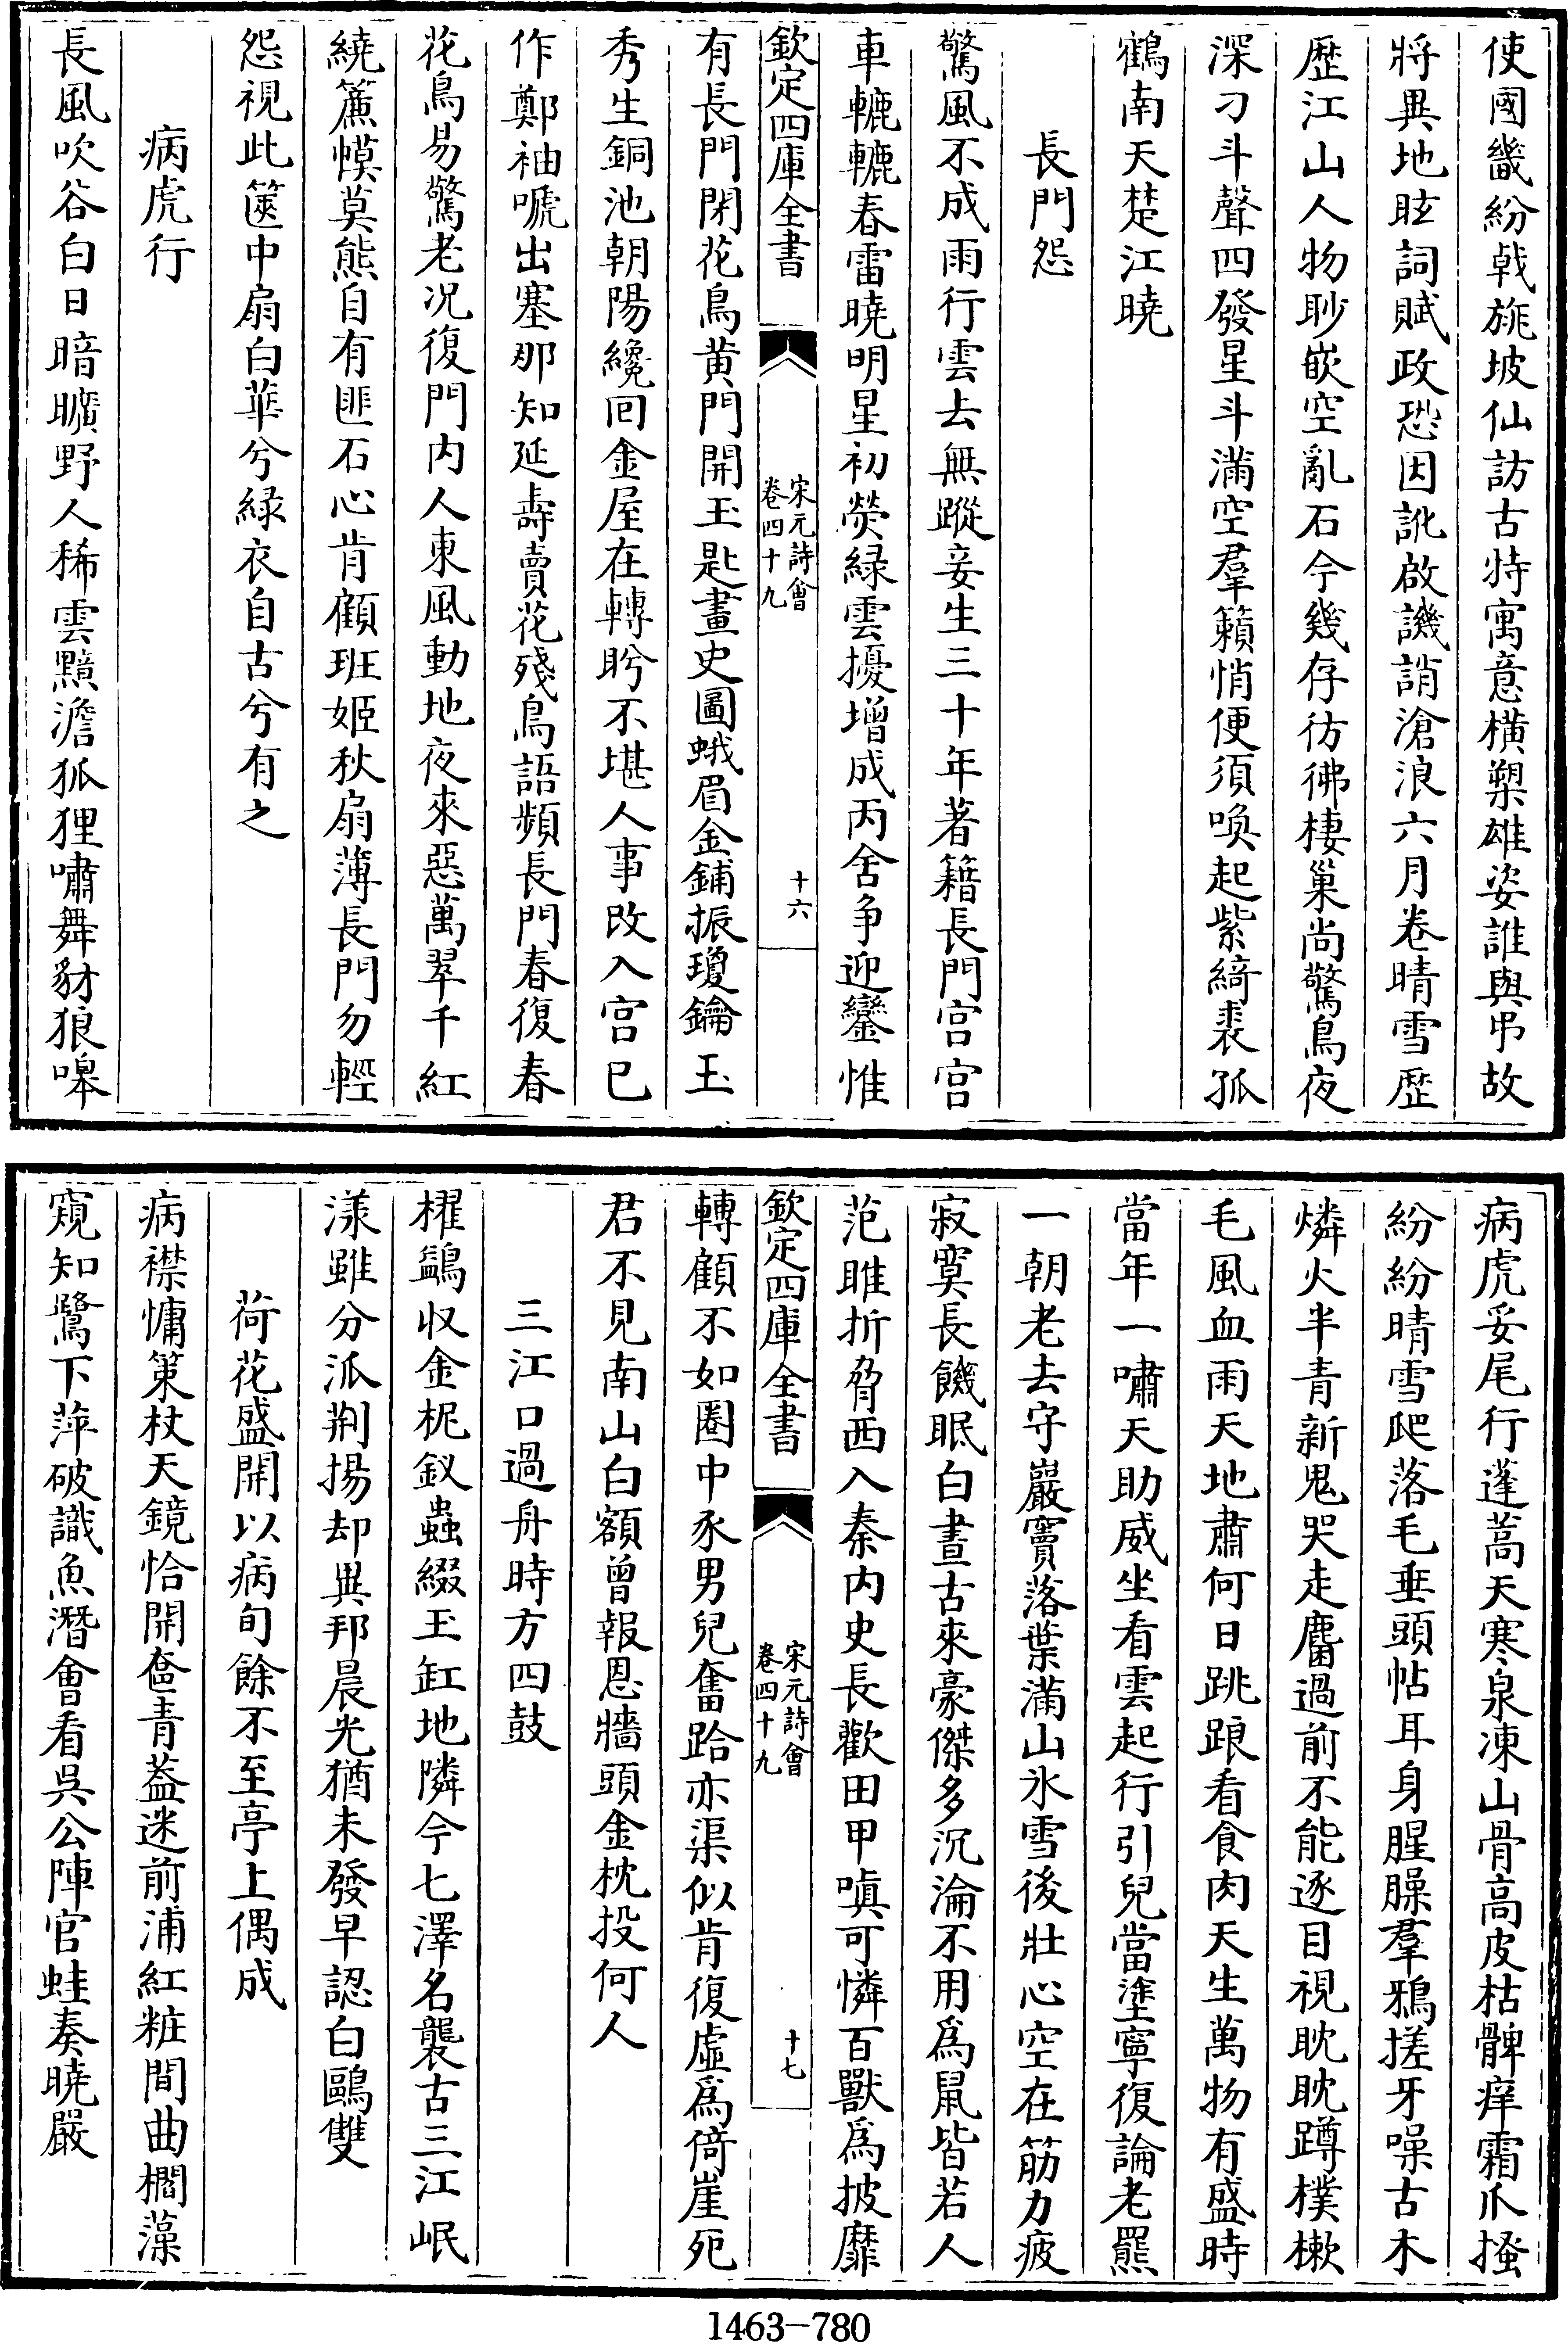 使國畿紛㦸旄坡仙訪古特寓意橫槊雄姿誰與弔故
將異地眩詞賦政恐因訛啟譏誚滄浪六月卷晴雪歴
歴江山人物眇嵌空亂石今幾存彷彿棲巢尚驚鳥夜
深刁斗聲四發星斗滿空羣籟悄便須喚起紫綺裘孤
鶴南天楚江曉
長門怨
驚風不成雨行雲去無蹤妾生三十年著籍長門宫宫
車轆轆春雷曉明星初熒緑雲擾增成丙舍争迎鑾惟
欽定四庫全書
宋元詩會
卷四十九
十六
有長門閉花鳥黄門開玉匙畫史圖蛾眉金鋪振瓊鑰玉
秀生銅池朝陽纔回金屋在轉盻不堪人事改入宫已
作鄭袖嗁出塞那知延壽賣花殘鳥語頻長門春復春
花鳥易驚老况復門内人東風動地夜來惡萬翠千紅
繞簾幙莫熊自有匪石心肯顧班姬秋扇薄長門勿輕
怨視此篋中扇白華兮緑衣自古兮有之
病虎行
長風吹谷白日暗曠野人稀雲黯澹狐狸嘯舞豺狼嘷
病虎妥尾行蓬蒿天寒泉凍山骨高皮枯髀痒霜爪搔
紛紛晴雪爬落毛垂頭帖耳身腥臊羣鴉搓牙噪古木
燐火半青新鬼哭走麕過前不能逐目視耽耽蹲樸樕
毛風血雨天地肅何日跳踉看食肉天生萬物有盛時
當年一嘯天助威坐看雲起行引兒當塗寧復論老羆
一朝老去守巖竇落葉滿山氷雪後壯心空在筋力疲
寂寞長饑眠白晝古來豪傑多沉淪不用爲鼠皆若人
范雎折脅西入秦内史長歡田甲嗔可憐百獸爲披靡
欽定四庫全書
宋元詩會
卷四十九
十七
轉顧不如圏中豕男兒奮跲亦渠似肯復虚爲倚崖死
君不見南山白額曾報恩牆頭金枕投何人
三江口過舟時方四鼓
櫂鷁收金柅釵蟲綴玉缸地隣今七澤名襲古三江岷
漾雖分派荆揚却異邦晨光猶未發早認白鷗雙
荷花盛開以病旬餘不至亭上偶成
病襟慵策杖天鏡恰開奩青葢迷前浦紅粧間曲櫩藻
窺知鷺下萍破識魚潛會看吳公陣官蛙奏曉嚴
1463—780